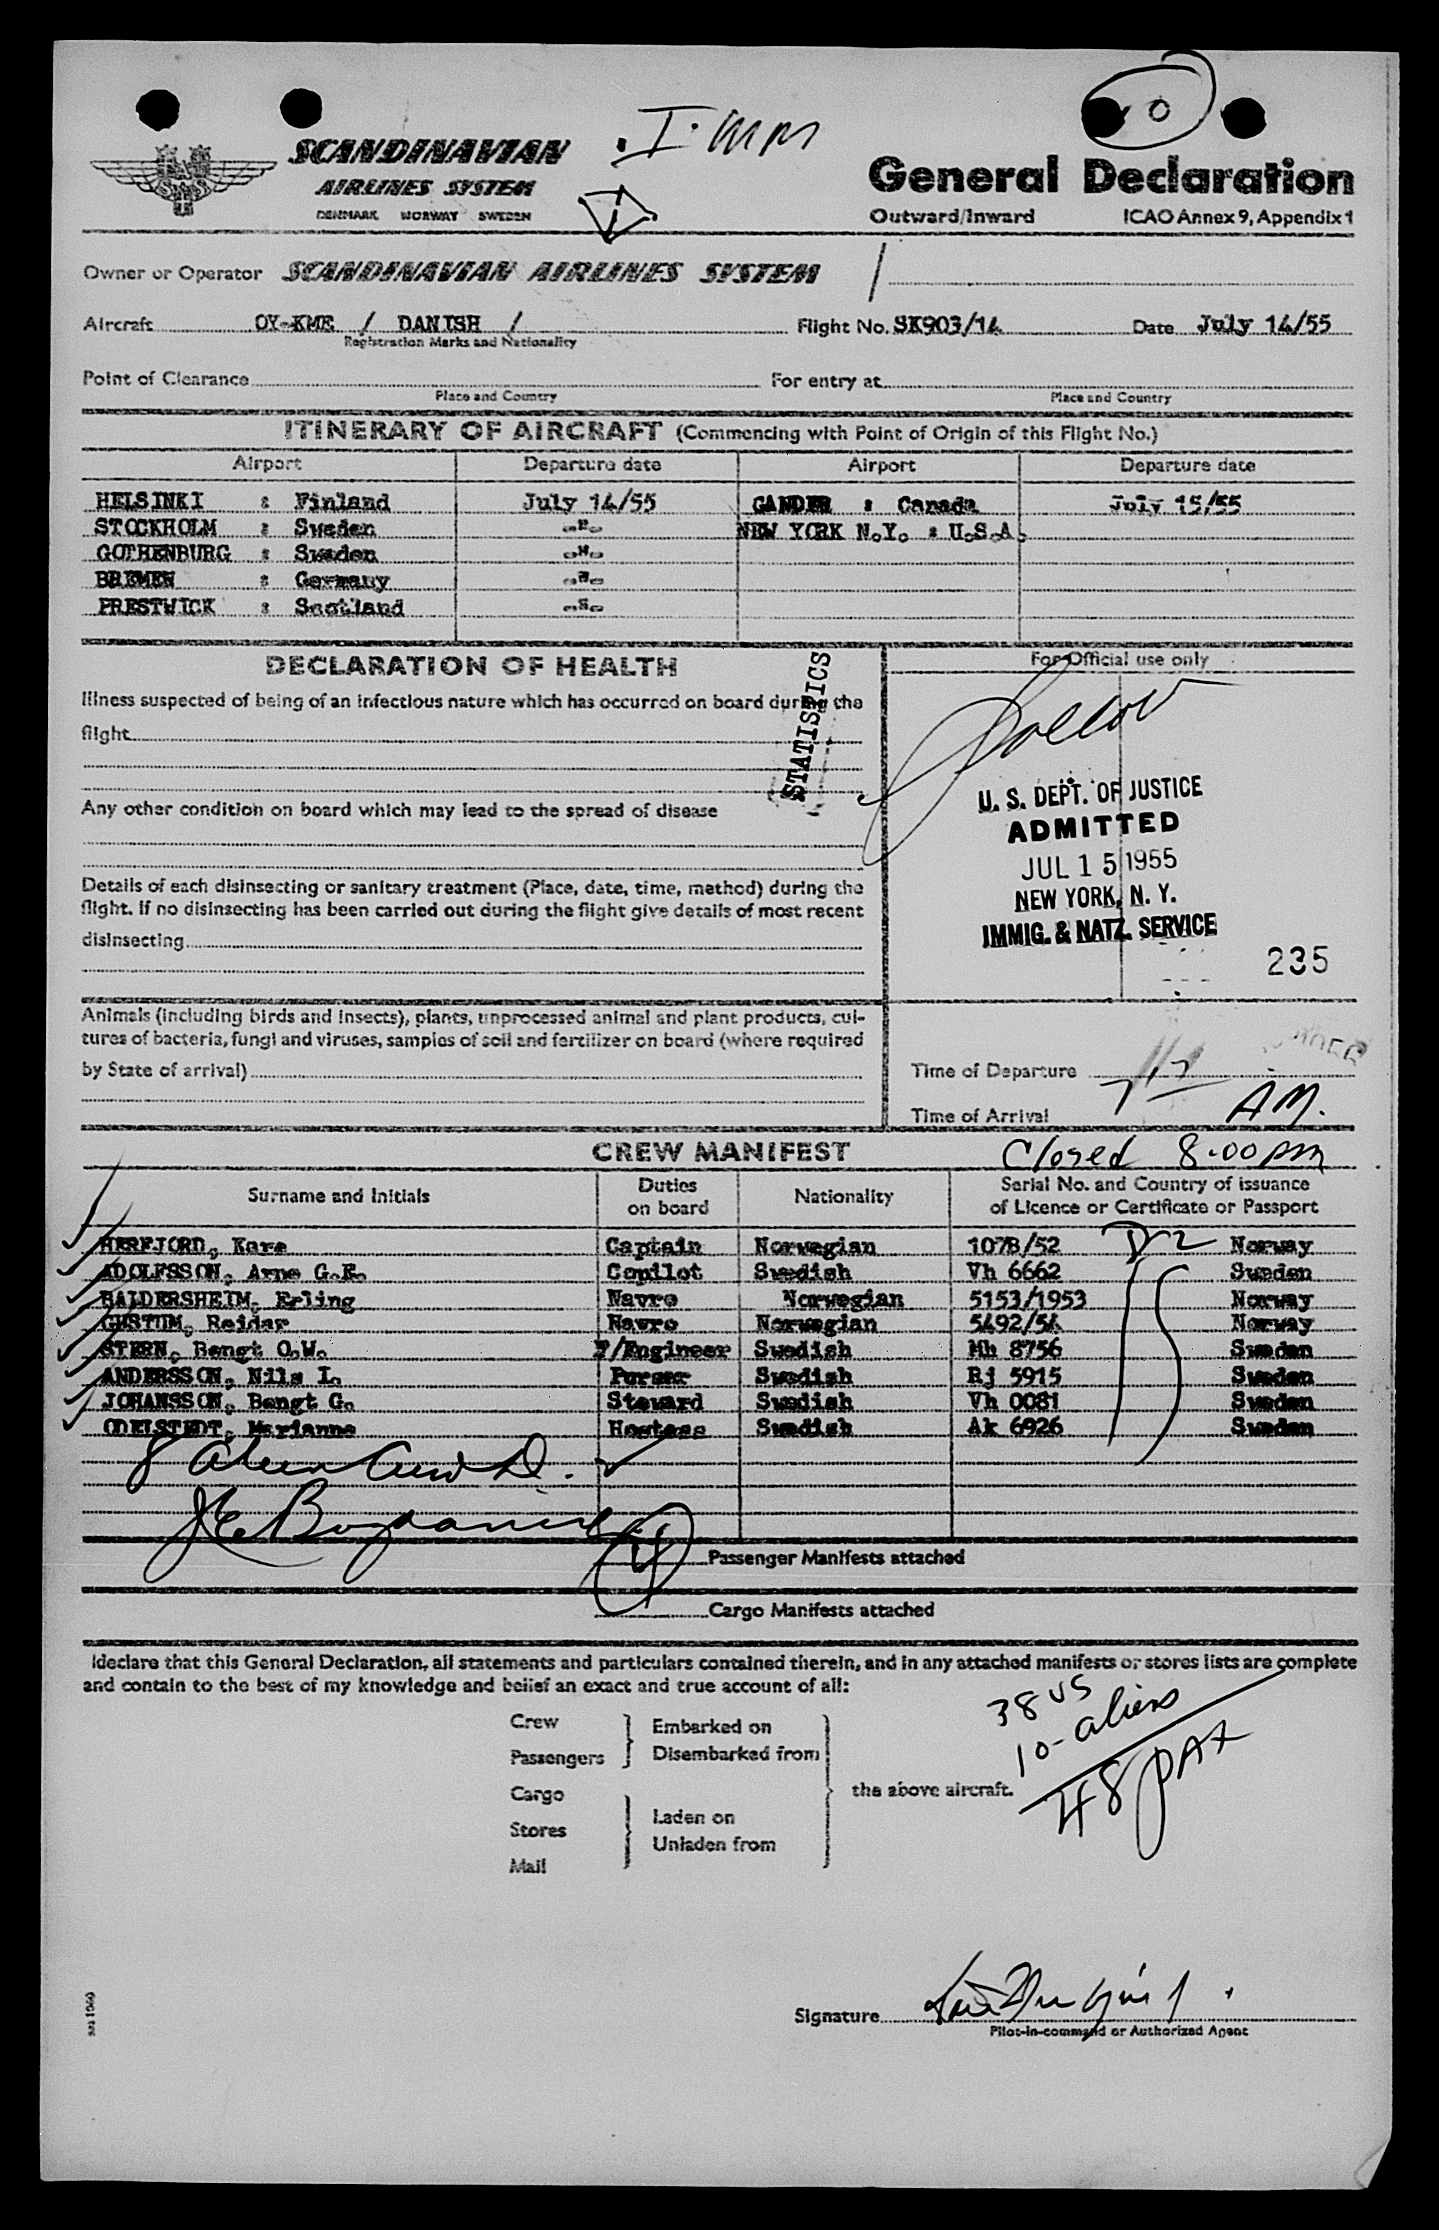 I. mm
0
SAS
SCANDINAVIAN
AIRLINES SYSTEM
DENMARK NORWAY SWEDEN
General Declaration
Outward/Inward ICAO Annex 9, Appendix 1
Owner or Operator SCANDINAVIAN AIRLINES SYSTEM
Aircraft OY-KME / DANISH / Flight No. SK903/14 Date July 14/55
Registration Marks and Nationality
Point of Clearance For entry at
Place and Country Place and Country
ITINERARY OF AIRCRAFT (Commencing with Point of Origin of this Flight No.)
Airport Departure date Airport Departure date
HELSINKI : Finland July 14/55 GANDER : Canada July 15/55
STOCKHOLM : Sweden -"- NEW YORK N.Y. : U.S.A.
GOTHENBURG : Sweden -"-
BREMEN : Germany -"-
PRESTWICK : Scotland -"-
DECLARATION OF HEALTH
For Official use only
Illness suspected of being of an infectious nature which has occurred on board during the
flight
STATISTICS
Any other condition on board which may lead to the spread of disease
U. S. DEPT. OF JUSTICE
ADMITTED
JUL 15 1955
NEW YORK, N. Y.
IMMIG. & NATZ. SERVICE
235
Details of each disinsecting or sanitary treatment (Place, date, time, method) during the
flight. If no disinsecting has been carried out during the flight give details of most recent
disinsecting
Animals (including birds and insects), plants, unprocessed animal and plant products, cul-
tures of bacteria, fungi and viruses, samples of soil and fertilizer on board (where required
by State of arrival)
Time of Departure
Time of Arrival 717 AM.
CREW MANIFEST Closed 8:00 pm
Surname and Initials Duties on board Nationality Serial No. and Country of issuance
of Licence or Certificate or Passport
HEREJORD, Kare Captain Norwegian 1078/52 D2 Norway
ADOLFSSON, Arne G.E. Copilot Swedish Vh 6662 Sweden
BALDERSHEIM, Erling Navro Norwegian 5153/1953 Norway
GUSTUM, Reidar Navro Norwegian 5492/54 Norway
STERN, Bengt O.W. F/Engineer Swedish Mh 8756 Sweden
ANDERSSON, Nils L. Purser Swedish Rj 5915 Sweden
JOHANSSON, Bengt G. Steward Swedish Vh 0081 Sweden
ODELSTEDT, Marianne Hostess Swedish Ak 6926 Sweden
8 Alien Crew D.
4 Passenger Manifests attached
Cargo Manifests attached
I declare that this General Declaration, all statements and particulars contained therein, and in any attached manifests or stores lists are complete
and contain to the best of my knowledge and belief an exact and true account of all:
38 US
10 - aliens
48 PAX
Crew Embarked on
Passengers Disembarked from
the above aircraft.
Cargo
Stores Laden on
Unladen from
Mail
Signature
Pilot-in-command or Authorized Agent